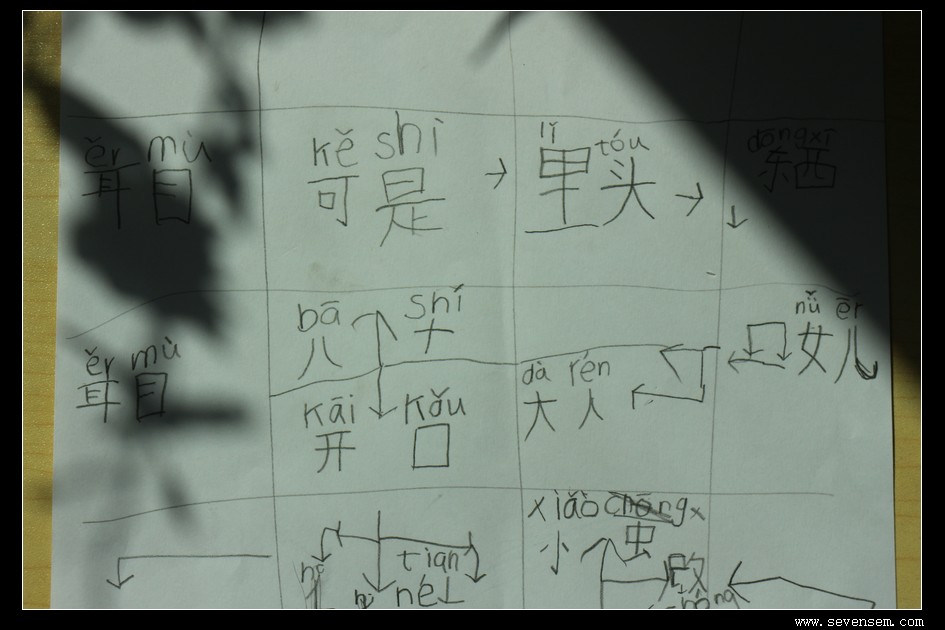 ěr mù kě shì lǐ tóu dōng xī
耳目 可是 → 里头 → 东西
bā shí nǚ ér
八 十 女儿
ěr mù dà rén
耳目 大人
kāi kǒu
开 口
xiǎo chóng
小 虫
tian
né
www.sevensem.com